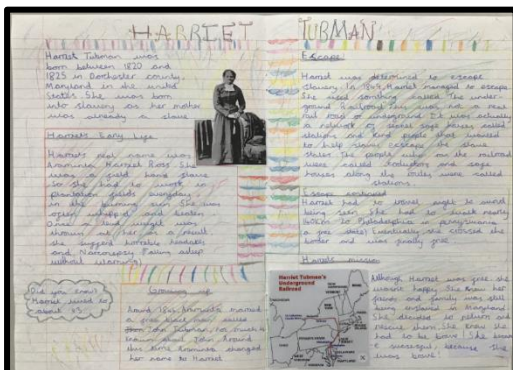 HARRIET TUBMAN
Harriet Tubman was
born between 1820 and
1825 in Dorchester county,
Maryland in the united
States. She was born
into slavery as her mother
was already a slave
Harriet's Early Life
Harriet's real name was
Araminta Harriet Ross. She
was a field hand slave
so she had to work in
plantation fields
in the burning sun. She was
often whipped and beaten
Once a lead weight was
thrown at her as a result
she suffered horrible headaches
and Narcolepsy Falling asleep
without warning
Did you know?
Harriet lived to
about 93
Growing up
Around 1844 Araminta married
a free black man called
John Tubman, not much is
known about John. Around
this time Araminta changed
her name to Harriet
Escape
Harriet was determined to escape
slavery. In 1849 Harriet managed to escape
She used something called The under-
ground Railroad. This was not a real
rail road or underground. It was actually
a network of secret safe houses called
stations and kind people that wanted
to help slaves escape the slave
states. The people along the railroad
were called and safe
houses along the routes were called
stations.
Escape continued
Harriet had to travel night to avoid
being seen. She had to travel nearly
to Philadelphia in pennsylvania
(a free state) Eventually she crossed the
border and was finally free
Harriet's mission
Harriet Tubman's
Underground
Railroad
Although Harriet was free she
wasn't happy. She knew her
friends and family was still
being enslaved in Maryland
She decided to return and
rescue them. She knew she
had to be brave! She
successful because she
was brave!